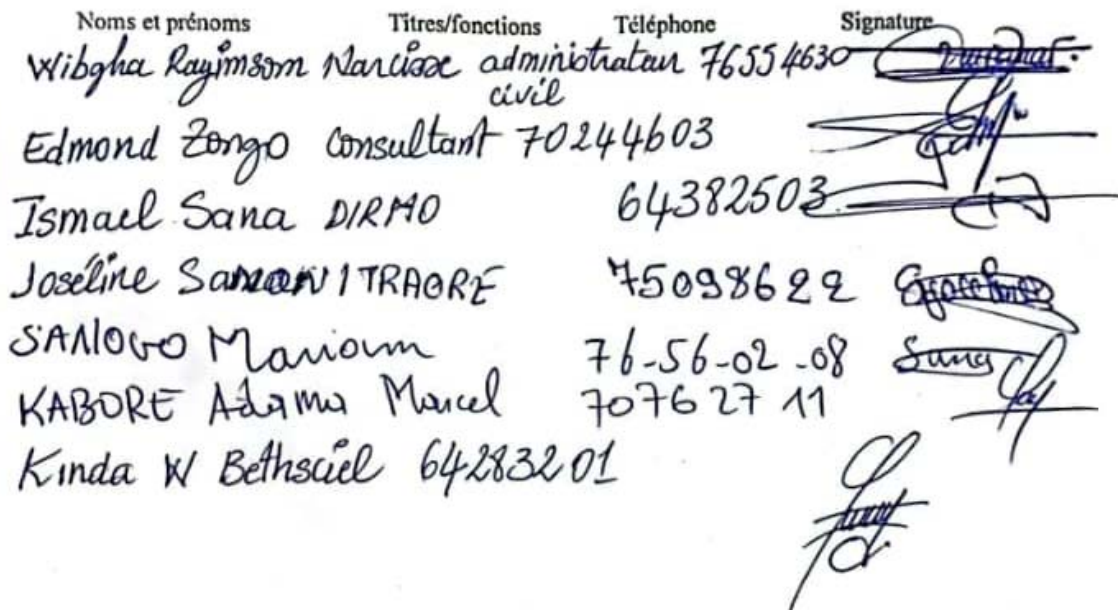 Noms et prénoms Titres/fonctions Téléphone Signature
Wibgha Rayimsom Narcisse administrateur 76554630
civil
Edmond Zongo Consultant 70244603
Ismael Sana DIRMO 64382503
Joséline TRAORE 75098622
SANOGO Mariam 76-56-02-08 Sang
KABORE Adama Marcel 70762711
Kinda W Bethsciel 64283201